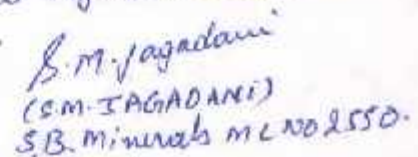 S.M. Jagadani
(S.M. JAGADANI)
S.B. Minerals ML NO 2550.